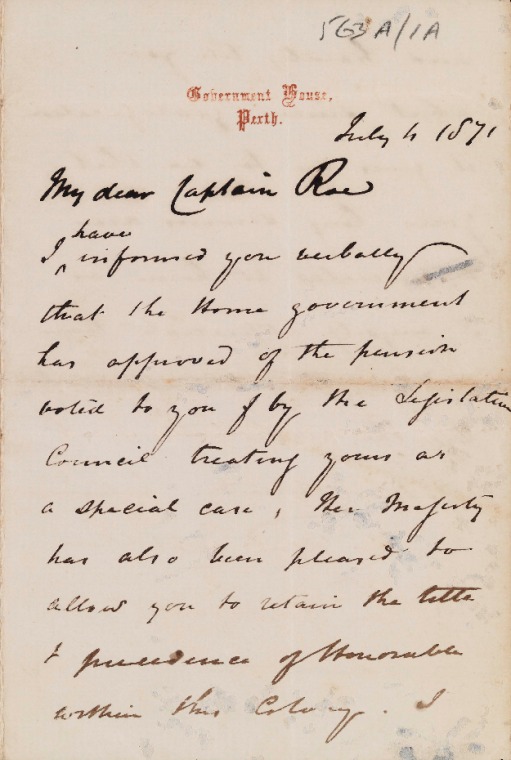 563A/1A
Government House,
Perth.
July 4 1871
My dear Captain Roe
have
I ^ informed you verbally
that the Home government
has approved of the pension
voted to you by the Legislative
Council treating yours as
a special case, Her Majesty
has also been pleased to
allow you to retain the title
& precedence of Honorable
within this Colony. I